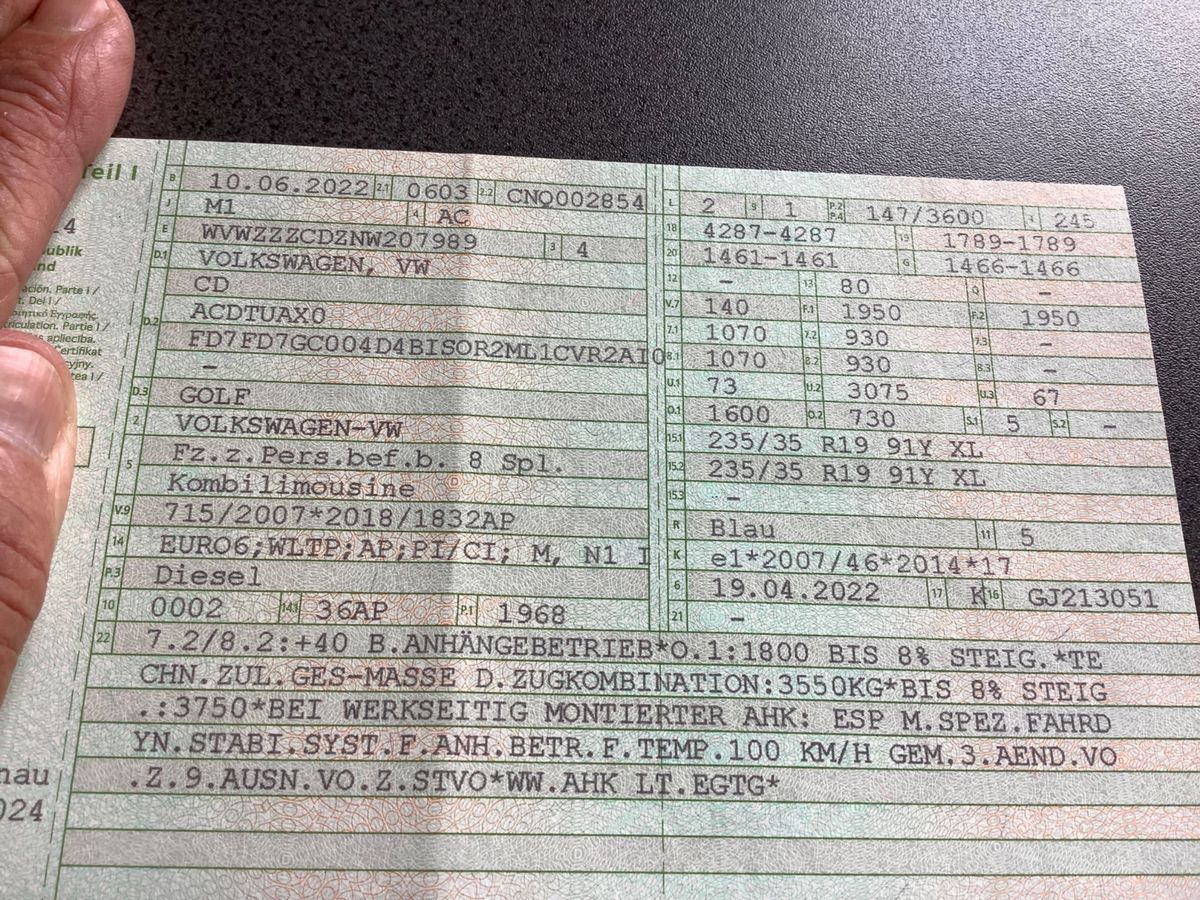 Teil I
4
ublik
nd
ación. Parte I /
t. Del I /
triculation. Partie I /
s apliecība.
Certifikat
cyjny.
tea I /
nau
024
B 10.06.2022 2.1 0603 2.2 CNQ002854
J M1 4 AC
E WVWZZZCDZNW207989 3 4
D.1 VOLKSWAGEN, VW
CD
D.2 ACDTUAX0
FD7FD7GC004D4BISOR2ML1CVR2AI0
–
D.3 GOLF
2 VOLKSWAGEN-VW
5 Fz.z.Pers.bef.b. 8 Spl.
Kombilimousine
V.9 715/2007*2018/1832AP
14 EURO6;WLTP;AP;PI/CI; M, N1 I
P.3 Diesel
10 0002 14.1 36AP P.1 1968
L 2 9 1 P.2 P.4 147/3600 T 245
18 4287-4287 19 1789-1789
20 1461-1461 G 1466-1466
12 – 13 80 Q –
V.7 140 F.1 1950 F.2 1950
7.1 1070 7.2 930 7.3 –
8.1 1070 8.2 930 8.3 –
U.1 73 U.2 3075 U.3 67
O.1 1600 O.2 730 S.1 5 S.2 –
15.1 235/35 R19 91Y XL
15.2 235/35 R19 91Y XL
15.3 –
R Blau 11 5
K e1*2007/46*2014*17
6 19.04.2022 17 K 16 GJ213051
21 –
22 7.2/8.2:+40 B.ANHÄNGEBETRIEB*O.1:1800 BIS 8% STEIG.*TE
CHN.ZUL.GES-MASSE D.ZUGKOMBINATION:3550KG*BIS 8% STEIG
.:3750*BEI WERKSEITIG MONTIERTER AHK: ESP M.SPEZ.FAHRD
YN.STABI.SYST.F.ANH.BETR.F.TEMP.100 KM/H GEM.3.AEND.VO
.Z.9.AUSN.VO.Z.STVO*WW.AHK LT.EGTG*